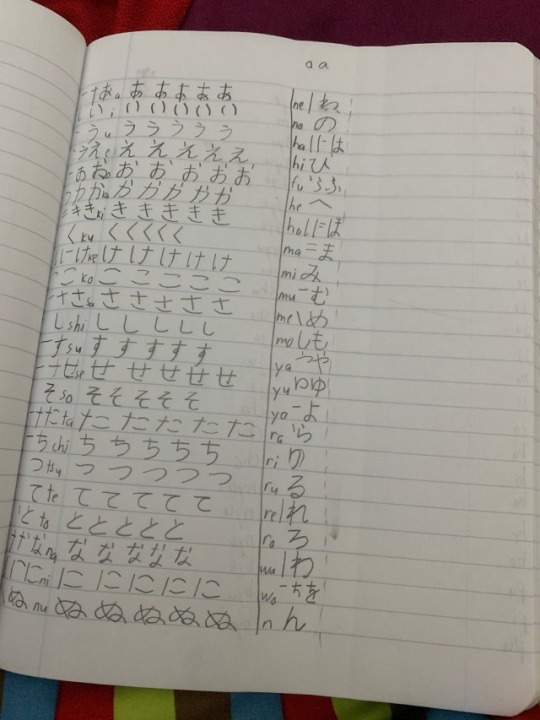 a a
あ a あ あ あ あ あ
い i い い い い い
う u う う う う う
え e え え え え え
お o お お お お お
か か か か か か
き ki き き き き き
く ku く く く く く
け ke け け け け け
こ ko こ こ こ こ こ
さ sa さ さ さ さ さ
し shi し し し し し
す su す す す す す
せ se せ せ せ せ せ
そ so そ そ そ そ そ
た ta た た た た た
ち chi ち ち ち ち ち
つ tsu つ つ つ つ つ
て te て て て て て
と to と と と と と
な na な な な な な
に ni に に に に に
ぬ nu ぬ ぬ ぬ ぬ ぬ
ne ね
no の
ha は
hi ひ
fu ふ
he へ
ho ほ
ma ま
mi み
mu む
me め
mo し も
ya や
yu ゆ
yo よ
ra ら
ri り
ru る
re れ
ro ろ
wa わ
wo を
n ん